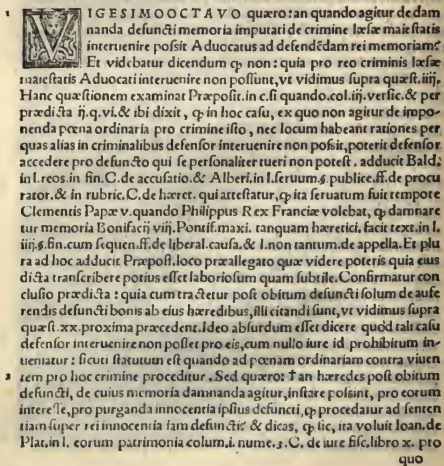 1 VIGESIMOOCTAVO quæro: an quando agitur de dam
nanda defuncti memoria imputati de crimine læsæ maiestatis
interuenire possit Aduocatus ad defendēdam rei memoriam?
Et videbatur dicendum ꝙ non: quia pro reo criminis læsæ
maiestatis Aduocati interuenire non possunt, vt vidimus supra quæst. iiij.
Hanc quæstionem examinat Præposit. in c. si quando. col. iij. versic. & per
prædicta ij. q. vi. & ibi dixit, ꝙ in hoc casu, ex quo non agitur de impo-
nenda pœna ordinaria pro crimine isto, nec locum habeant rationes per
quas alias in criminalibus defensor interuenire non possit, poterit defensor
accedere pro defuncto qui se personaliter tueri non potest. adducit Bald.
in l. reos. in fin. C. de accusatio. & Alberi. in l. seruum. §. publice. ff. de procu
rator. & in rubric. C. de hæret. qui attestatur, ꝙ ita seruatum fuit tempore
Clementis Papæ v. quando Philippus Rex Franciæ volebat, ꝙ damnare
tur memoria Bonifacij viij. Pontif. maxi. tanquam hæretici. facit text. in l.
iiij. §. fin. cum sequen. ff. de liberal. causa. & l. non tantum. de appella. Et plu
ra ad hoc adducit Præpost. loco præallegato quæ videre poteris quia eius
dicta transcribere potius esset laboriosum quam subtile. Confirmatur con
clusio prædicta: quia cum tractetur post obitum defuncti solum de aufe
rendis defuncti bonis ab eius hæredibus, illi citandi sunt, vt vidimus supra
quæst. xx. proxima præcedent. Ideo absurdum esset dicere quòd tali casu
defensor interuenire non posset pro eis, cum nullo iure id prohibitum in-
ueniatur: sicuti statutum est quando ad pœnam ordinariam contra viuen
2 tem pro hoc crimine proceditur. Sed quæro: † an hæredes post obitum
defuncti, de cuius memoria damnanda agitur, instare possint, pro eorum
interesse, pro purganda innocentia ipsius defuncti, ꝙ procedatur ad senten
tiam super rei innocentia iam defuncti: & dicas, ꝙ sic, ita voluit Ioan. de
Plat. in l. eorum patrimonia colum. i. nume. 3. C. de iure fisc. libro x. pro
quo